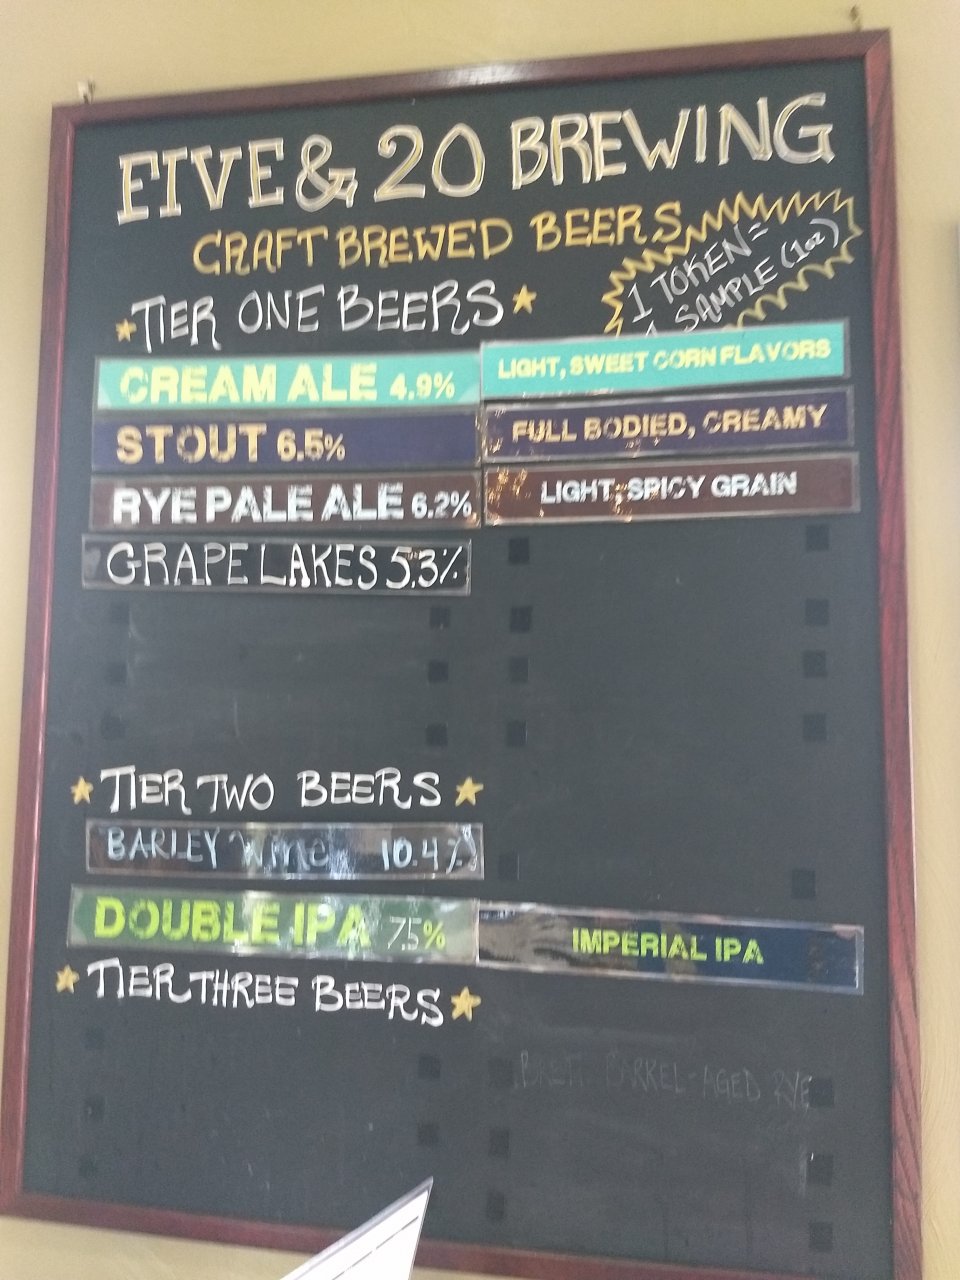 FIVE & 20 BREWING
CRAFT BREWED BEERS
1 TOKEN =
1 SAMPLE (1oz)
TIER ONE BEERS
CREAM ALE 4.9% LIGHT, SWEET CORN FLAVORS
STOUT 6.5% FULL BODIED, CREAMY
RYE PALE ALE 6.2% LIGHT, SPICY GRAIN
GRAPE LAKES 5.3%
TIER TWO BEERS
BARLEY Wine 10.4%
DOUBLE IPA 7.5% IMPERIAL IPA
TIER THREE BEERS
BARREL-AGED RYE